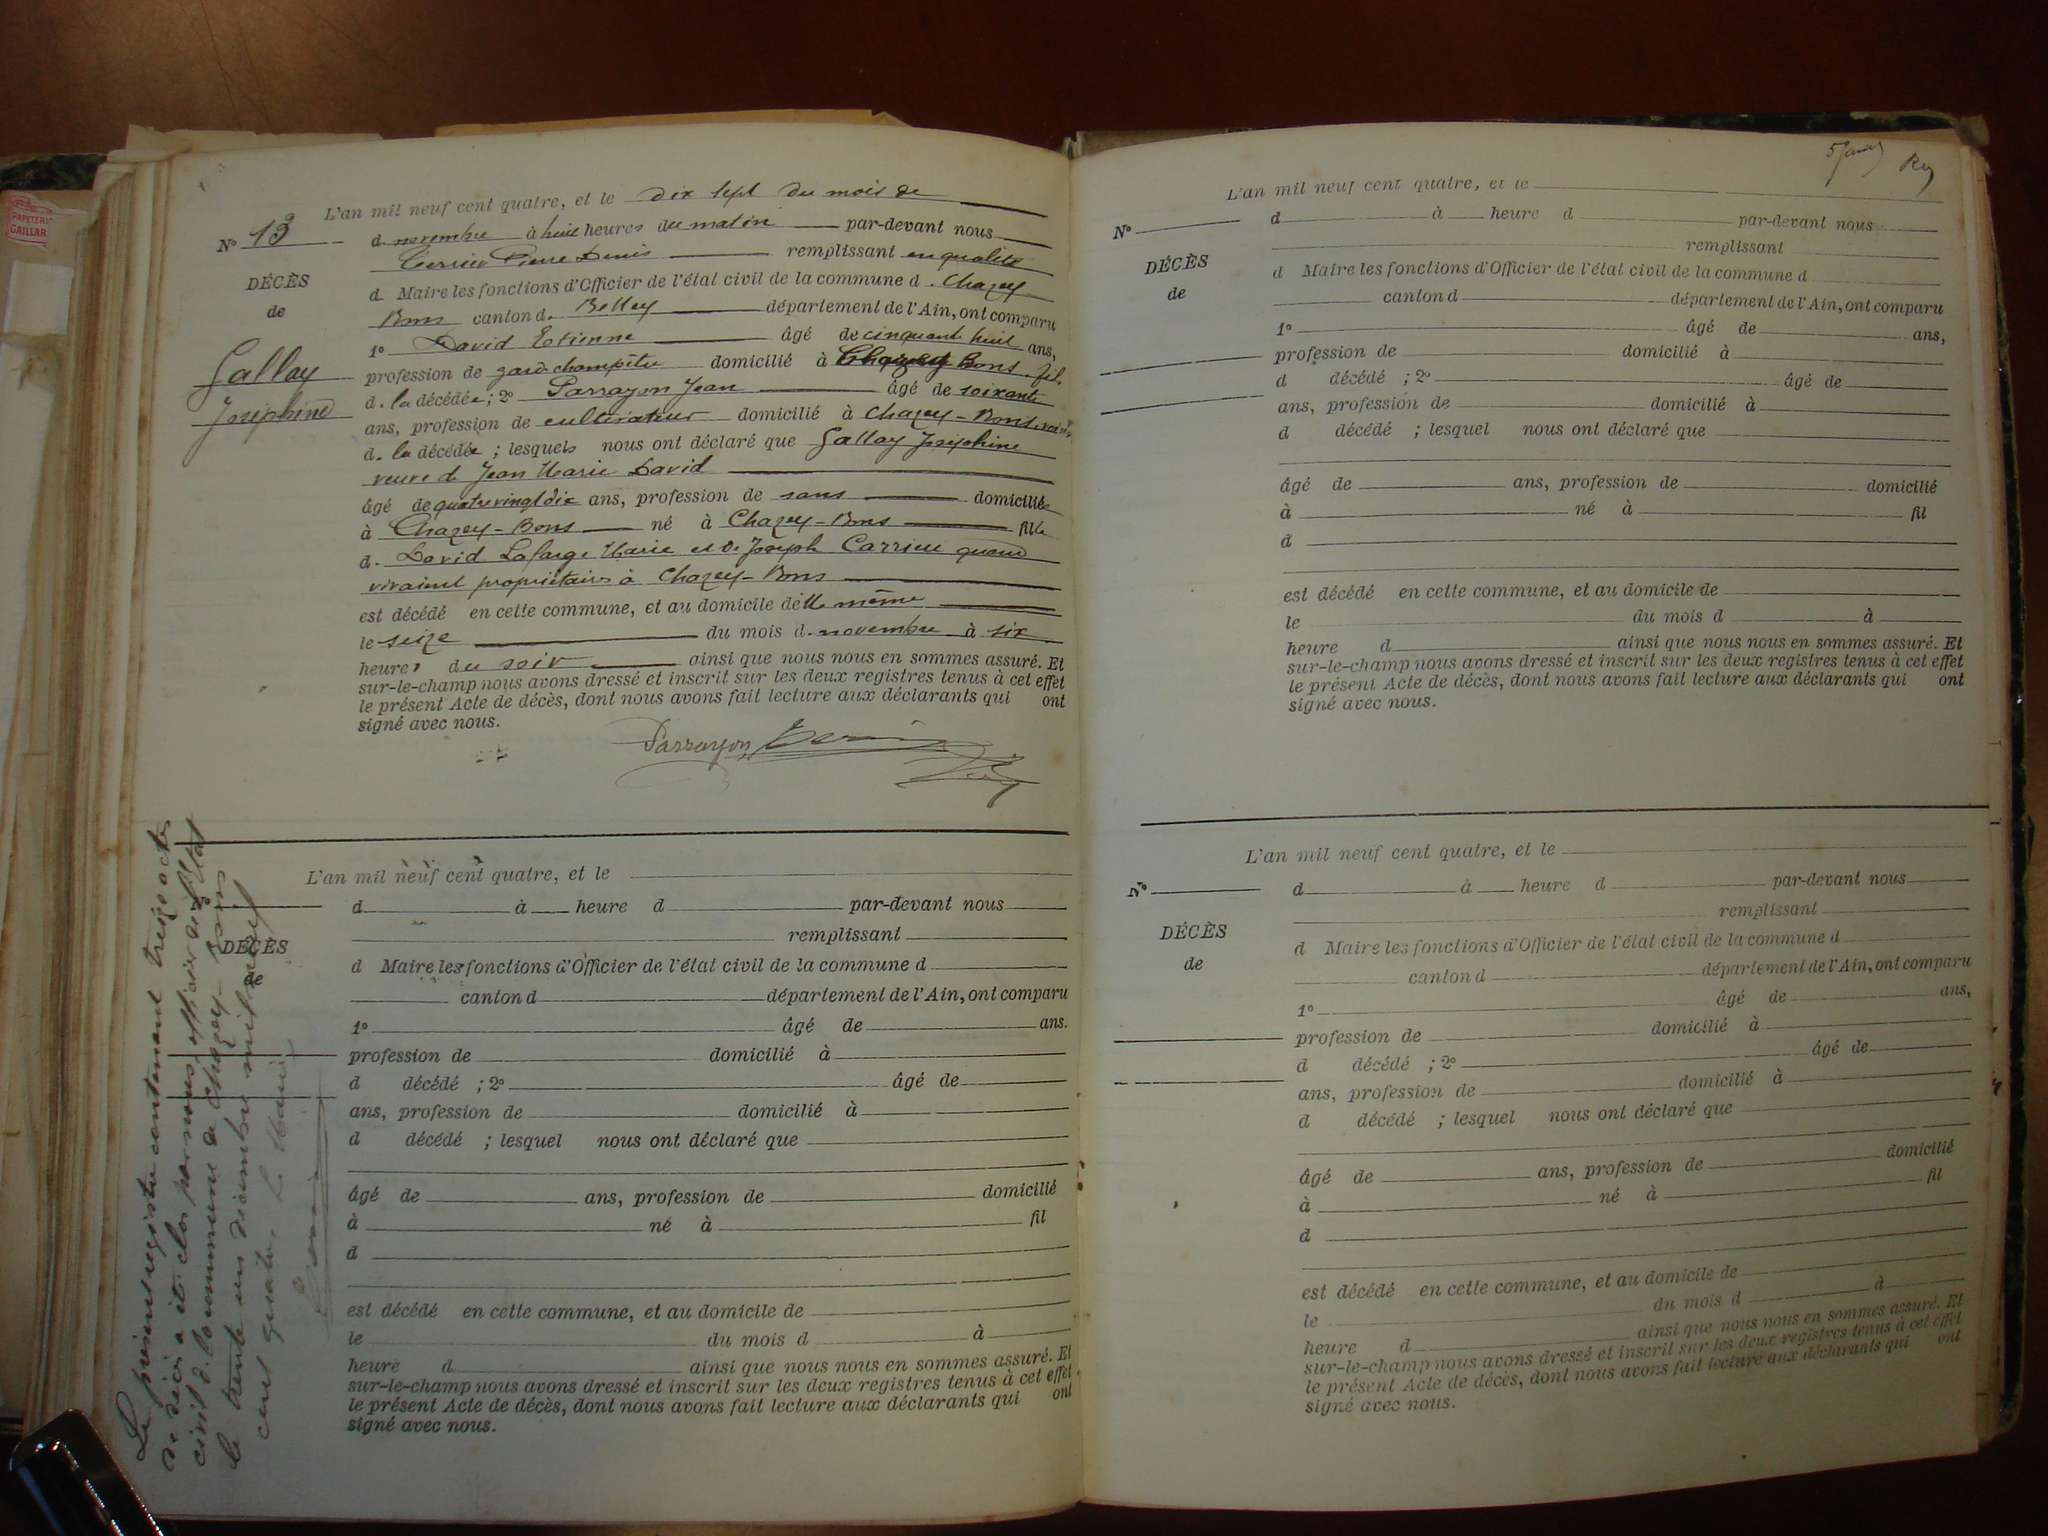 PAPETERIE
GAILLAR
L'an mil neuf cent quatre, et le dix sept du mois de
N° 13
d novembre à huit heures du matin par-devant nous
Pierre Denis remplissant en qualité
DÉCÈS
de
Gallay
Joséphine
d Maire les fonctions d'Officier de l'état civil de la commune d. Chazey
Bons canton d. Belley département de l'Ain, ont comparu
1° David Etienne âgé de cinquant huit ans,
profession de garde champêtre domicilié à Chazey Bons. fils
d. la décédée; 2° Parrayon Jean âgé de soixante
ans, profession de cultivateur domicilié à Chazey-Bons
d. la décédée ; lesquels nous ont déclaré que Gallay Joséphine
veuve d Jean Marie David
âgé de quatrevingt dix ans, profession de sans domiciliée
à Chazey-Bons né à Chazey-Bons fille
d. David Lafarge Marie et de Joseph Carrieu quand
vivaient propriétaires à Chazey-Bons
est décédé en cette commune, et au domicile d'elle même
le seize du mois d. novembre à six
heures du soir ainsi que nous nous en sommes assuré. Et
sur-le-champ nous avons dressé et inscrit sur les deux registres tenus à cet effet
le présent Acte de décès, dont nous avons fait lecture aux déclarants qui ont
signé avec nous.
Parrayon
L'an mil neuf cent quatre, et le
d à heure d par-devant nous
remplissant
DÉCÈS
de
d Maire les fonctions d'Officier de l'état civil de la commune d
canton d département de l'Ain, ont comparu
1° âgé de ans.
profession de domicilié à
d décédé ; 2° âgé de
ans, profession de domicilié à
d décédé ; lesquel nous ont déclaré que
âgé de ans, profession de domicilié
à né à fil
d
est décédé en cette commune, et au domicile de
le du mois d à
heure d ainsi que nous nous en sommes assuré. Et
sur-le-champ nous avons dressé et inscrit sur les deux registres tenus à cet effet
le présent Acte de décès, dont nous avons fait lecture aux déclarants qui ont
signé avec nous.
Le présent registre contenant treize actes
de décès a été clos par nous officier de l'état
civil de la commune de Chazey-Bons
le trente un décembre mil neuf
cent quatre. Le Maire
Rey
L'an mil neuf cent quatre, et le
N°
d à heure d par-devant nous
remplissant
DÉCÈS
de
d Maire les fonctions d'Officier de l'état civil de la commune d
canton d département de l'Ain, ont comparu
1° âgé de ans,
profession de domicilié à
d décédé ; 2° âgé de
ans, profession de domicilié à
d décédé ; lesquel nous ont déclaré que
âgé de ans, profession de domicilié
à né à fil
d
est décédé en cette commune, et au domicile de
le du mois d à
heure d ainsi que nous nous en sommes assuré. Et
sur-le-champ nous avons dressé et inscrit sur les deux registres tenus à cet effet
le présent Acte de décès, dont nous avons fait lecture aux déclarants qui ont
signé avec nous.
L'an mil neuf cent quatre, et le
N°
d à heure d par-devant nous
remplissant
DÉCÈS
de
d Maire les fonctions d'Officier de l'état civil de la commune d
canton d département de l'Ain, ont comparu
1° âgé de ans,
profession de domicilié à
d décédé ; 2° âgé de
ans, profession de domicilié à
d décédé ; lesquel nous ont déclaré que
âgé de ans, profession de domicilié
à né à fil
d
est décédé en cette commune, et au domicile de
le du mois d à
heure d ainsi que nous nous en sommes assuré. Et
sur-le-champ nous avons dressé et inscrit sur les deux registres tenus à cet effet
le présent Acte de décès, dont nous avons fait lecture aux déclarants qui ont
signé avec nous.